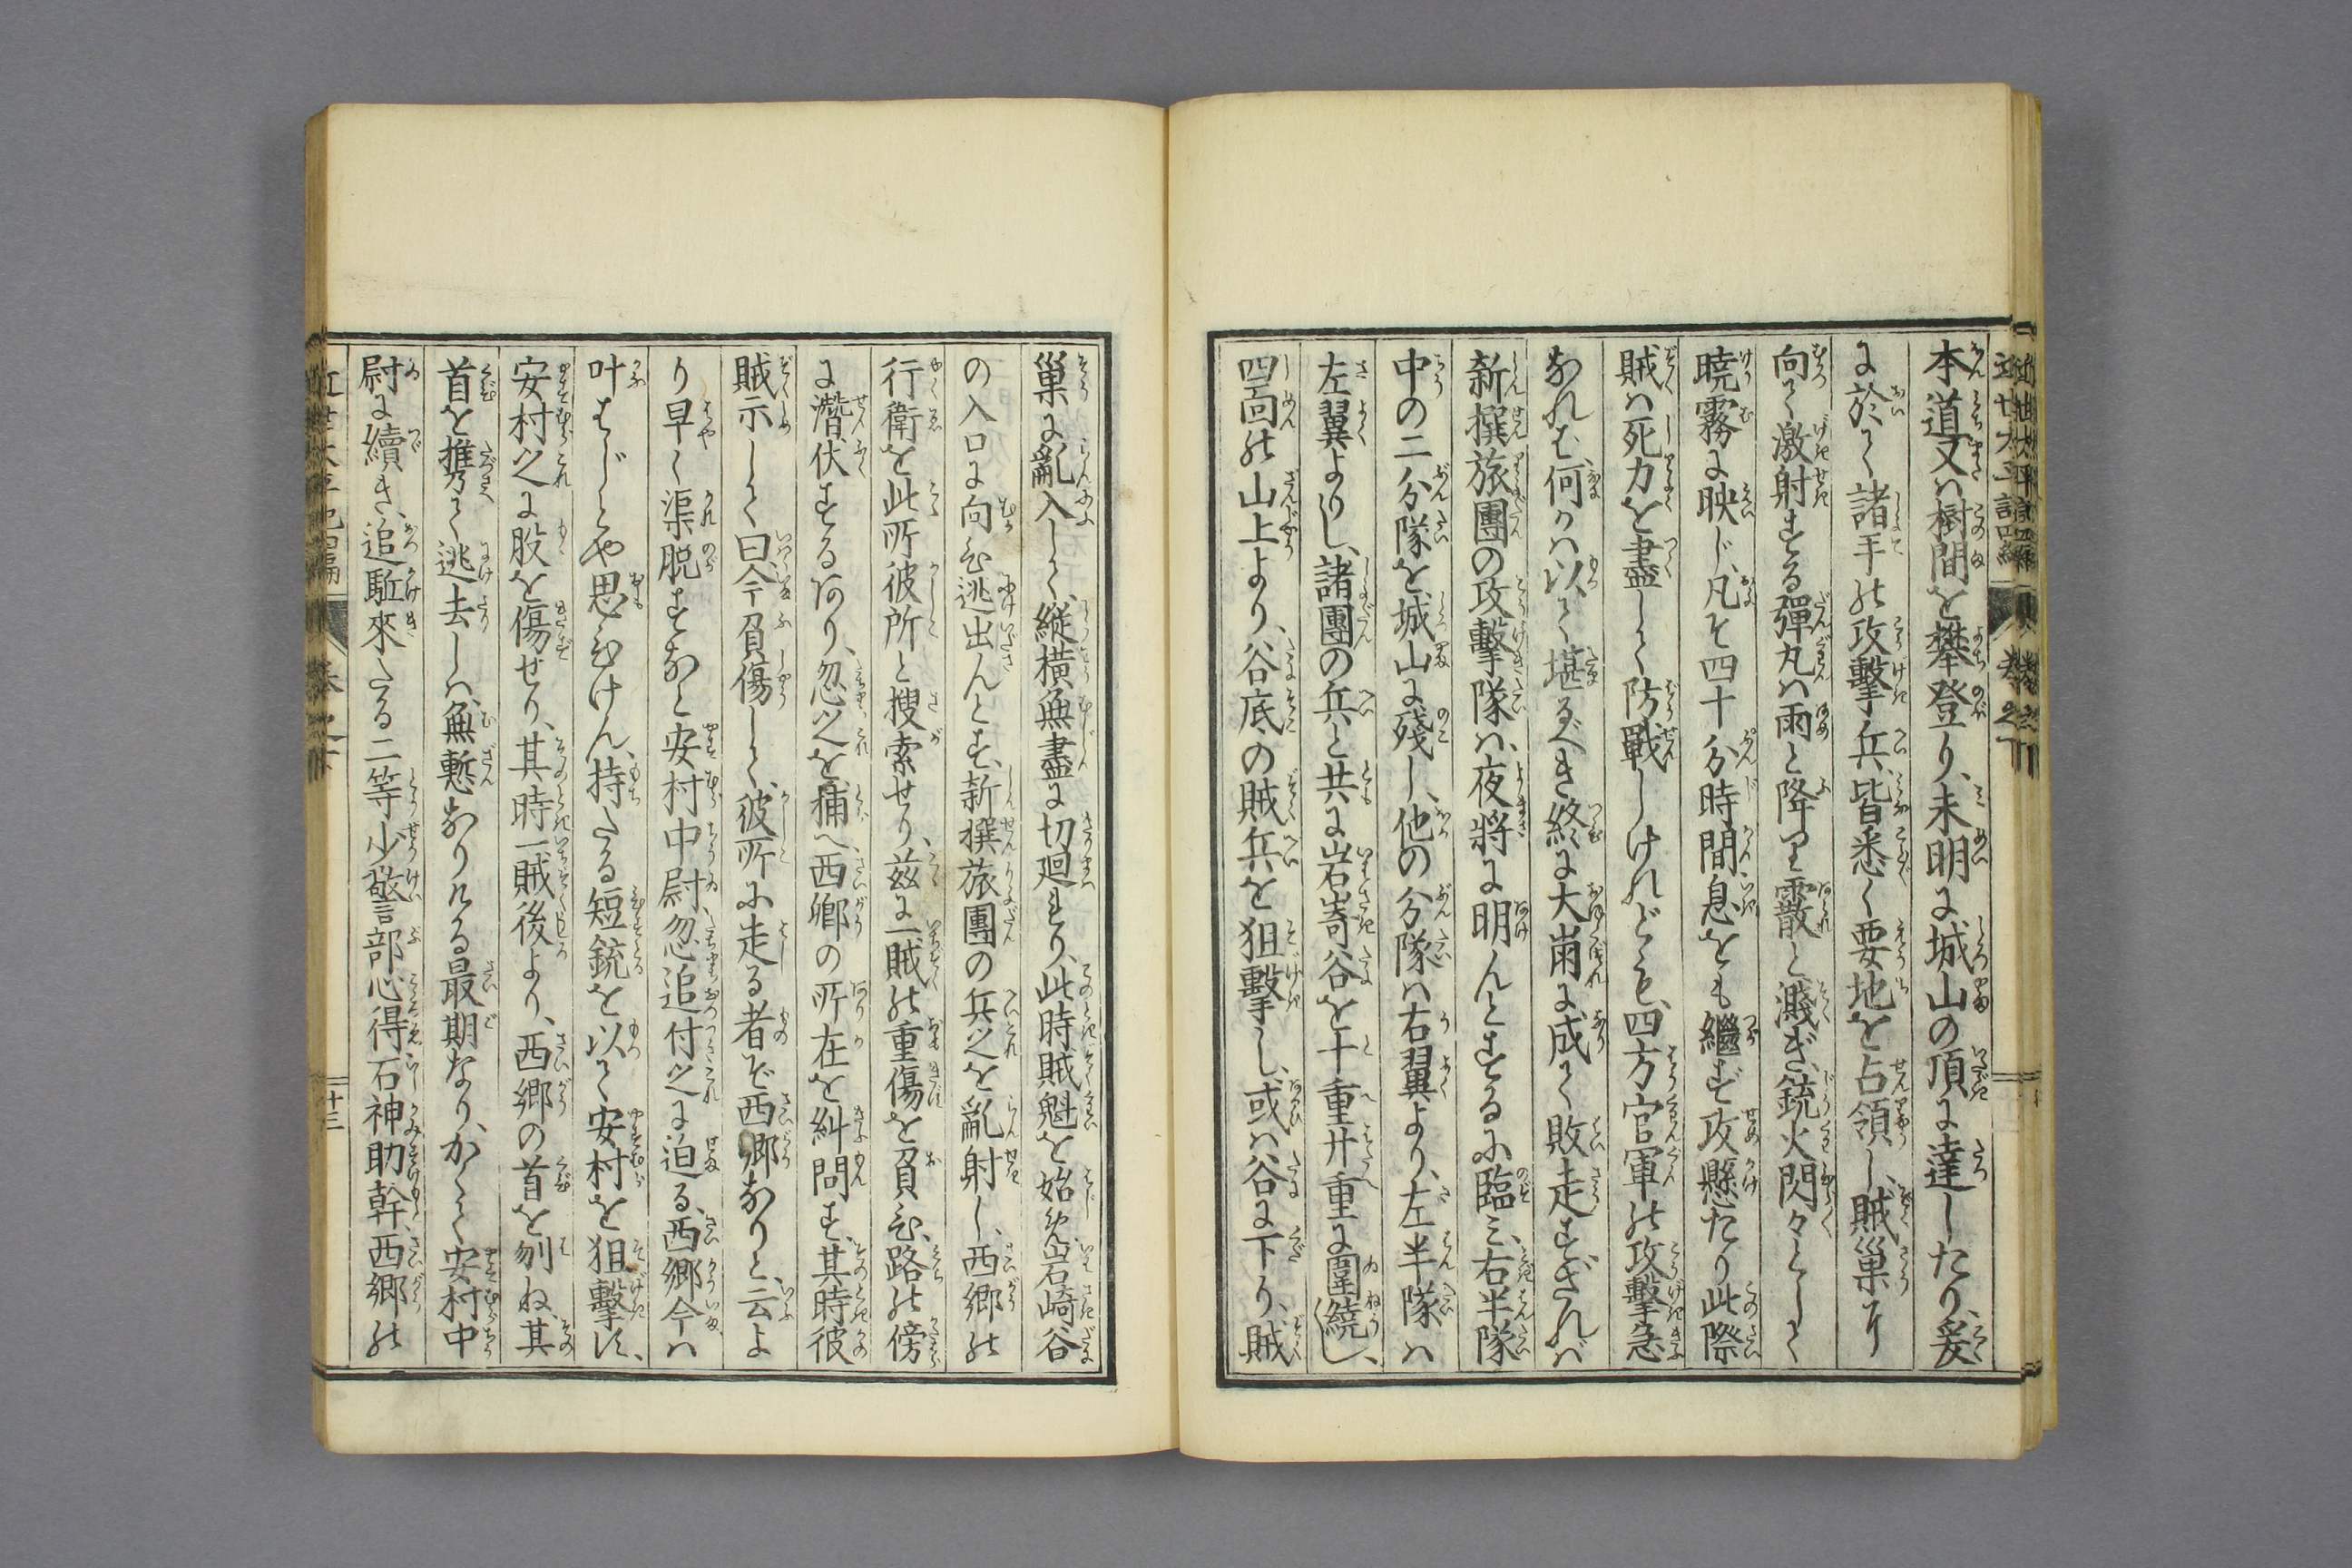 本道又ハ樹間を攀登り、未明に城山の頂に達したり、爰
に於て諸手の攻擊兵、皆悉く要地を占領し、賊巢に
向て激射する彈丸ハ雨と降り霰と濺ぎ、銃火閃々として
曉霧に映じ、凡そ四十分時間息をも繼ず攻懸たり此際
賊ハ死力を盡して防戰しけれども、四方官軍の攻擊急
なれバ、何かハ以て堪るべき終に大崩に成て敗走すざれバ
新撰旅團の攻擊隊ハ、夜將に明んとするに臨ミ、右半隊
中の二分隊を城山に殘し、他の分隊ハ右翼より、左半隊ハ
左翼よりし、諸團の兵と共に岩嵜谷を十重廿重に圍繞し、
四面の山上より、谷底の賊兵を狙擊し、或ハ谷に下り、賊
巢に亂入して、縱橫無盡に切廻れり、此時賊魁を始め岩崎谷
の入口に向ひ逃出んとす、新撰旅團の兵之を亂射し、西鄉の
行衛を此所彼所と搜索せり、茲に一賊の重傷を負ひ、路の傍
に潛伏するあり、忽之を捕へ、西鄉の所在を糾問す、其時彼
賊示して曰今負傷して、彼所に走る者ぞ西鄉なりと、云よ
り早く渠脱すなと安村中尉、忽追付之に迫る、西鄉今ハ
叶はじとや思ひけん、持たる短銃を以て安村を狙擊す、
安村之に股を傷せり、其時一賊後より、西鄉の首を刎ね、其
首を携て逃去しハ、無慙なりける最期なり、かくて安村中
尉に續き、追駈來たる二等少警部心得石神助幹、西鄉の
近世太平記四編　卷之下　二十三